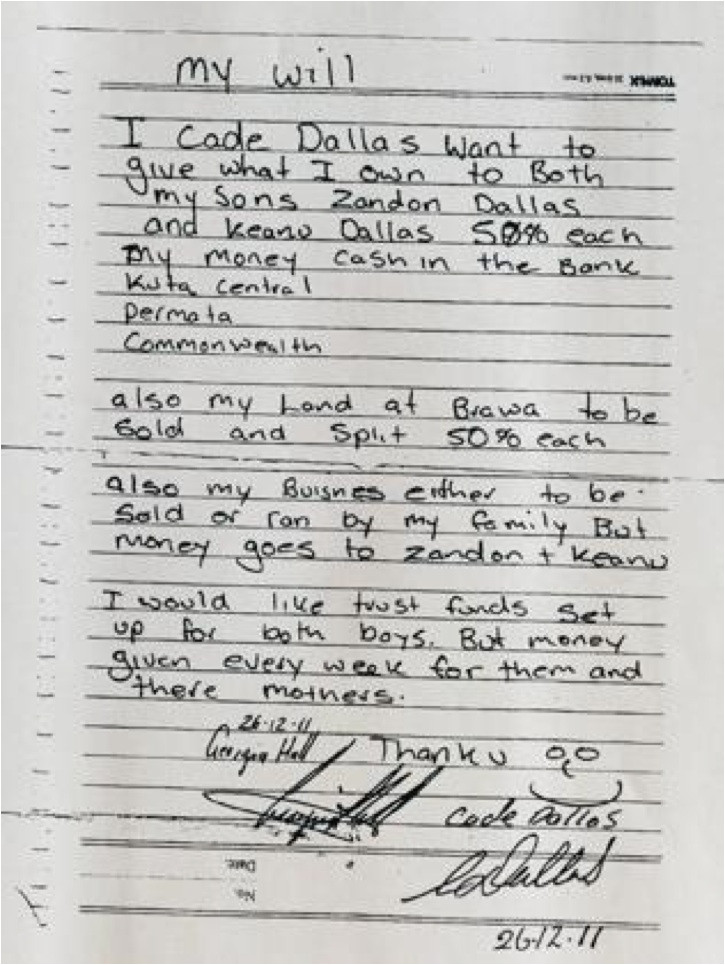 my will
I Cade Dallas want to
give what I own to Both
my Sons Zandon Dallas
and Keanu Dallas 50% each
my money cash in the Bank
Kuta central
Permata
Commonwealth
also my Land at Brawa to be
Sold and Split 50% each
also my Buisnes either to be
Sold or ran by my family But
money goes to Zandon + Keanu
I would like trust funds set
up for both boys. But money
given every week for them and
there mothers.
26-12-11
Georgia Hall Thank u
Cade Dallas
C Dallas
Date:
No.
26-12-11